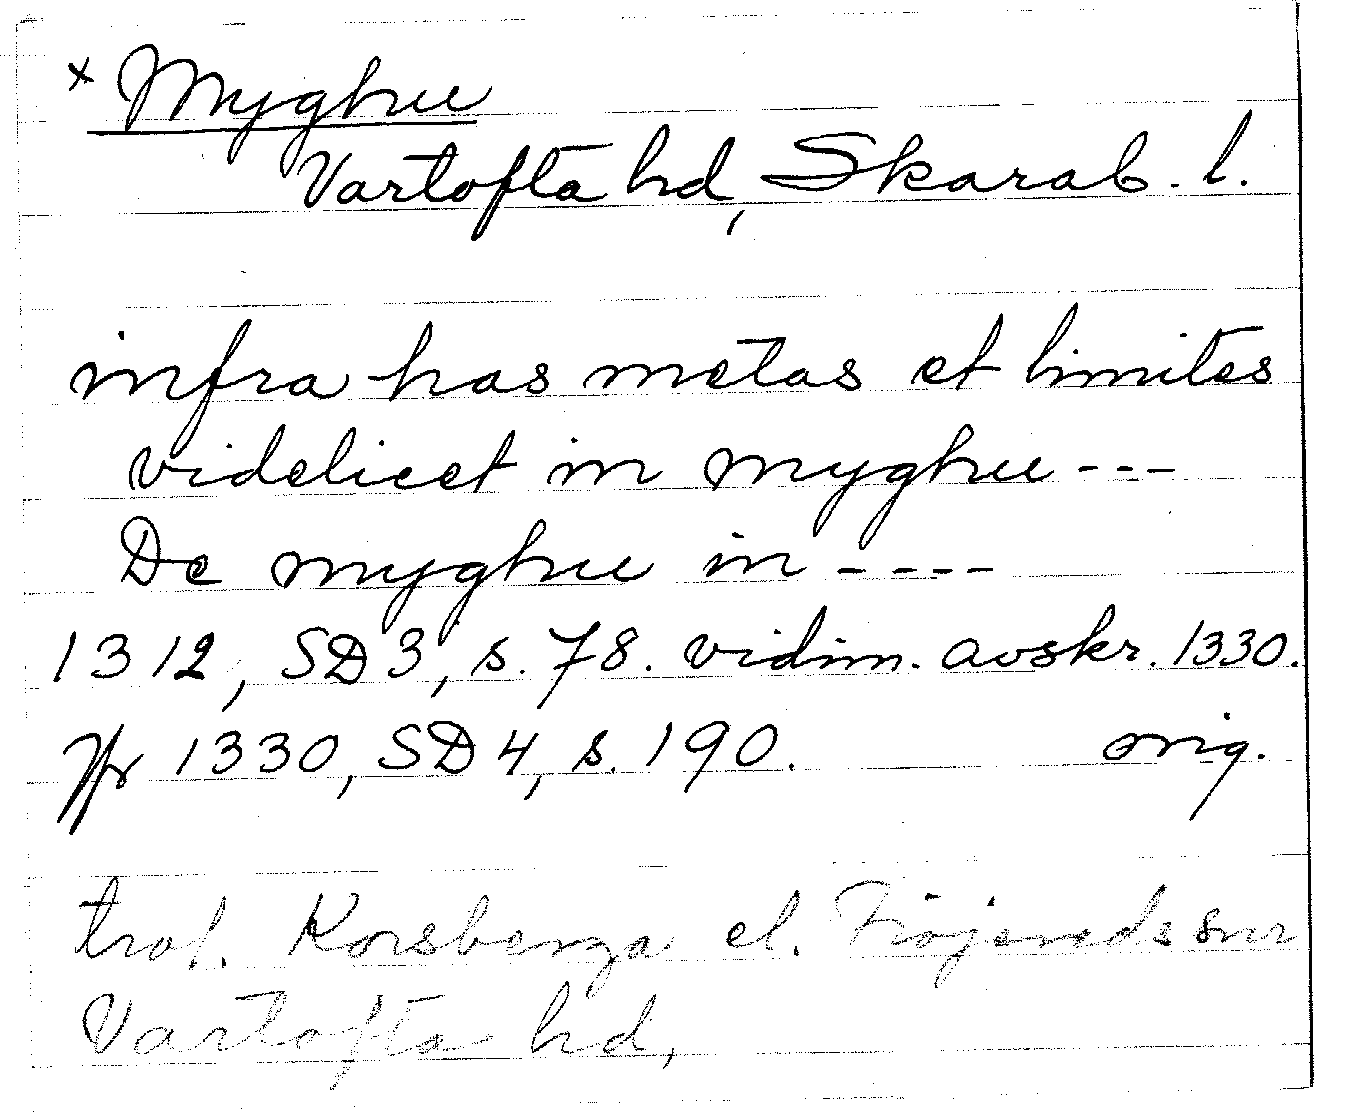 × Myghue
Vartofta hd, Skarab. l.
infra has metas et limites
videlicet in myghue ---
De myghue in ----
1312, SD 3, s. 78. vidim. avskr. 1330.
Jfr 1330, SD 4, s. 190. orig.
trol. Korsberga el. Fröjereds snr
Vartofta hd,